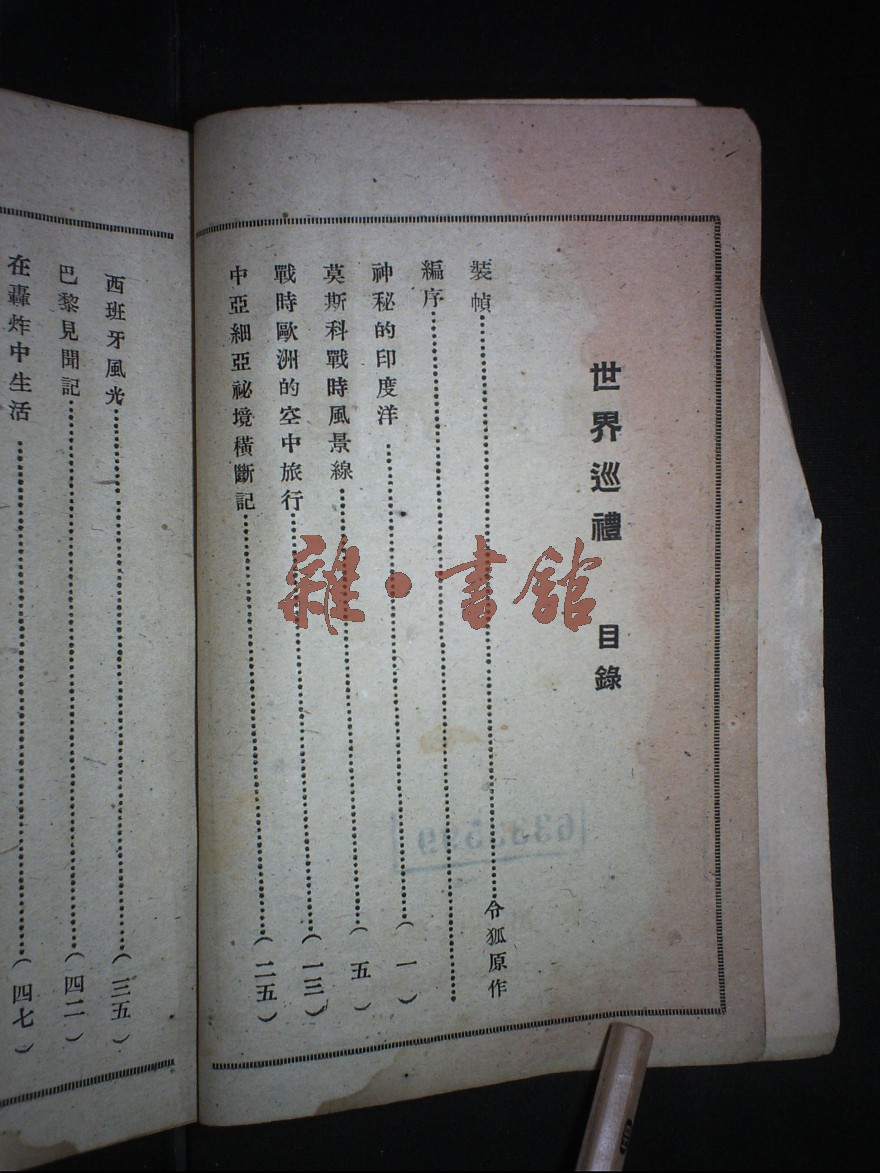 世界巡禮 目錄
裝幀……令狐原作
編序……
神秘的印度洋……(一)
莫斯科戰時風景線……(五)
戰時歐洲的空中旅行……(一三)
中亞細亞祕境橫斷記……(二五)
西班牙風光……(三五)
巴黎見聞記……(四二)
在轟炸中生活……(四七)
雜·書館